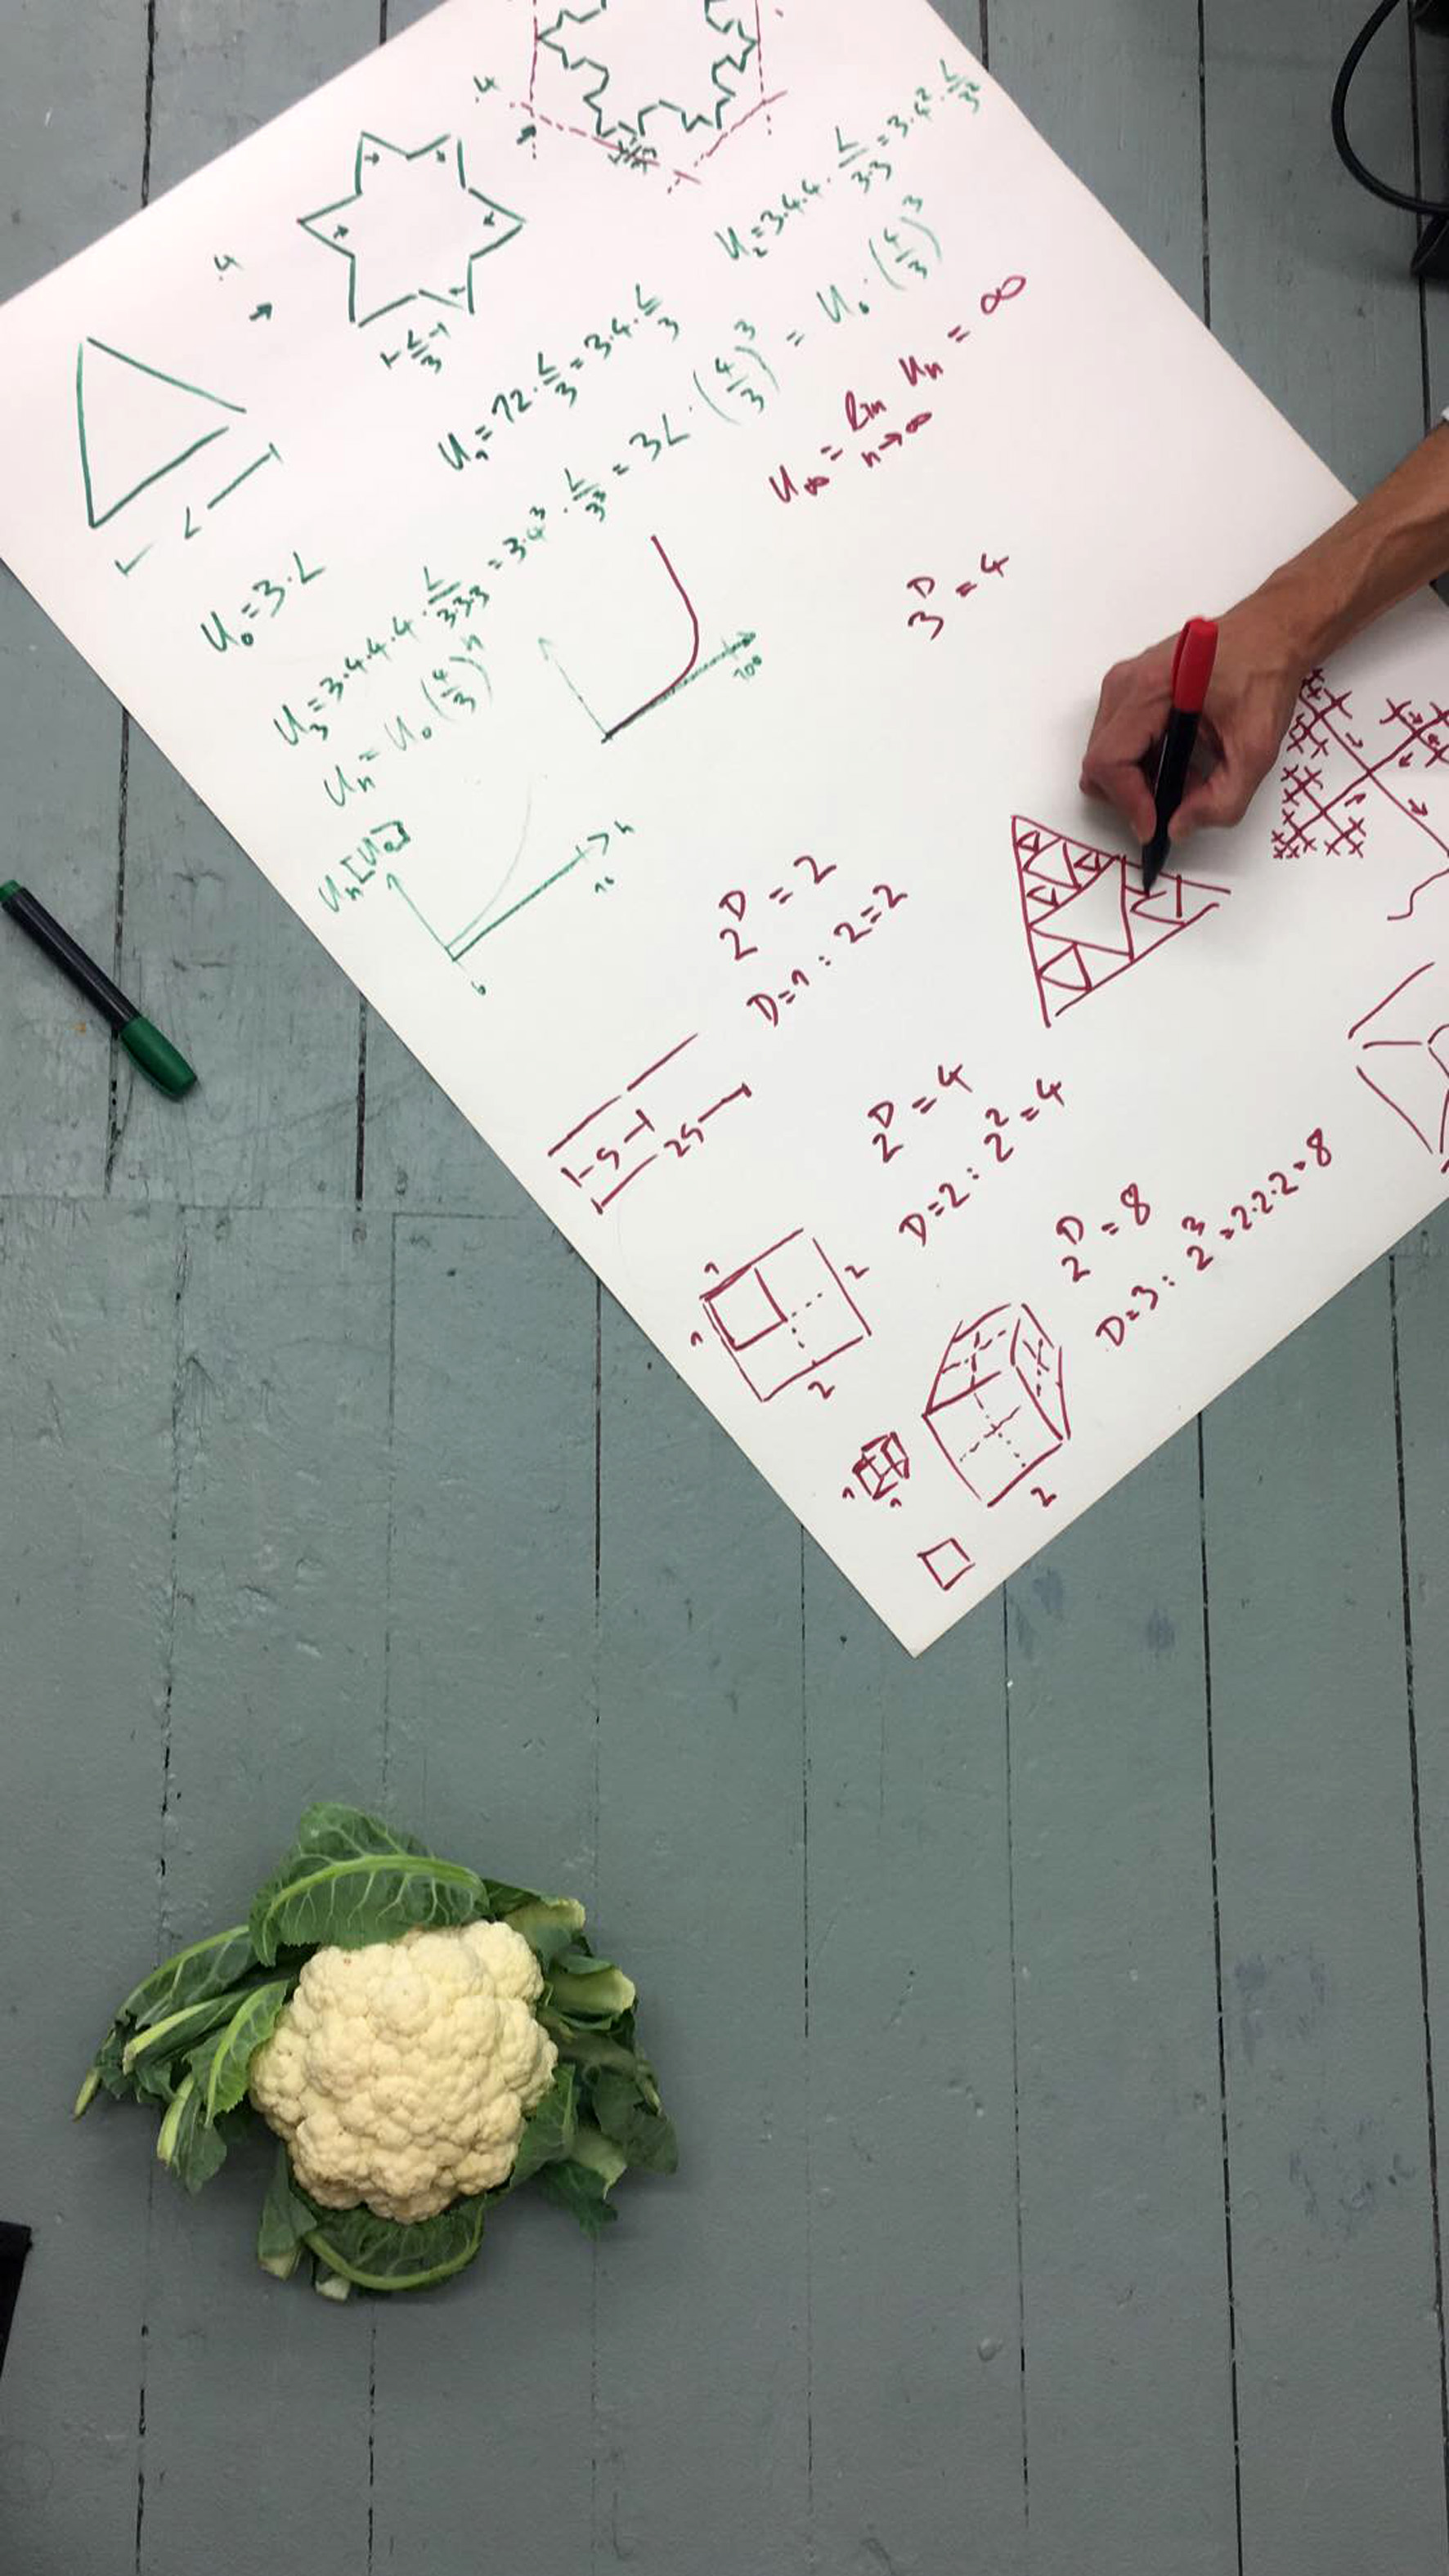 ·4
·4
L/3
L
U₀=3·L
U₁=12·L/3=3·4·L/3
U₂=3·4·4·L/3·3=3·4²·L/3²
U₃=3·4·4·4·L/3·3·3=3·4³·L/3³=3L·(4/3)³=U₀·(4/3)³
Uₙ=U₀(4/3)ⁿ
U∞=lim n→∞ Uₙ=∞
100
Uₙ[U₀]
n
10
3ᴰ=4
2ᴰ=2
D=1:2=2
2ᴰ=4
D=2:2²=4
2ᴰ=8
D=3:2³=2·2·2=8
1
1
2
2
1
1
2